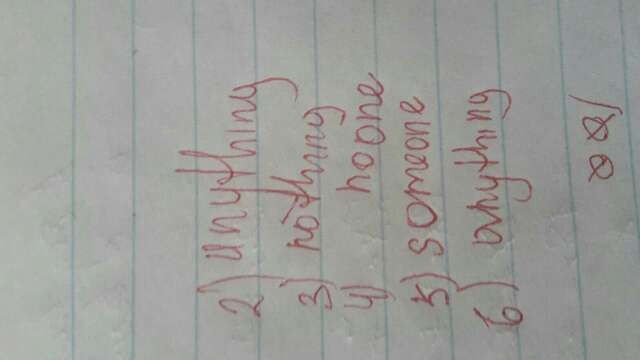 2) anything
3) nothing
4) noone
5) someone
6) anything